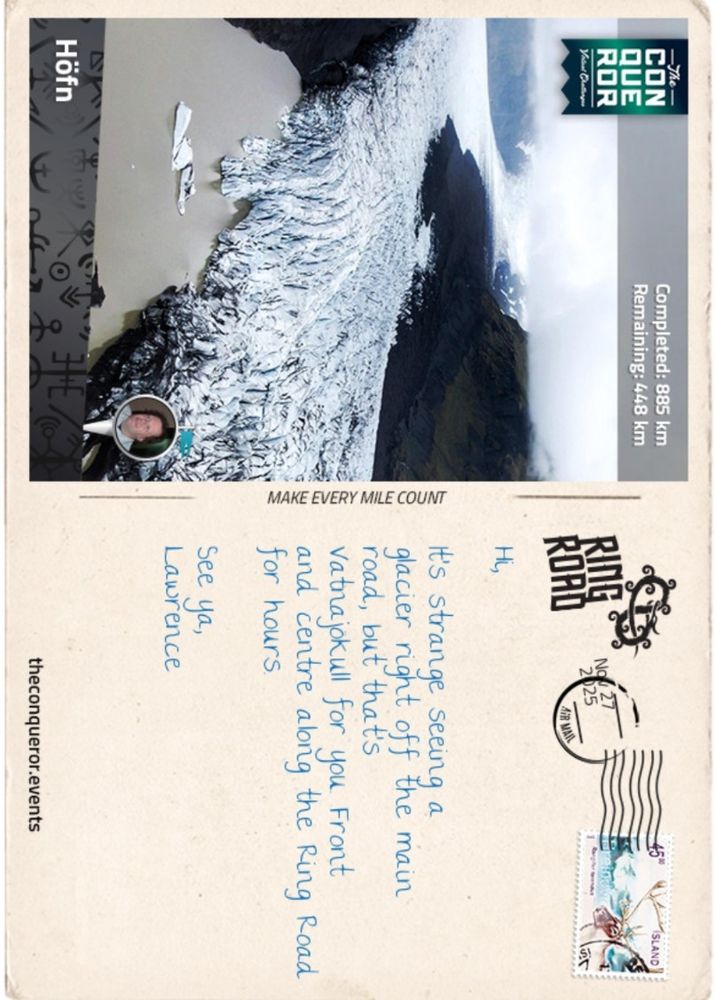 The
CON
QUE
ROR
Virtual Challenges
Completed: 885 km
Remaining: 448 km
Höfn
MAKE EVERY MILE COUNT
RING
ROAD
Nov 27
2025
AIR MAIL
45⁰⁰
ISLAND
Hi,
It's strange seeing a
glacier right off the main
road, but that's
Vatnajokull for you. Front
and centre along the Ring Road
for hours.
See ya,
Lawrence
theconqueror.events